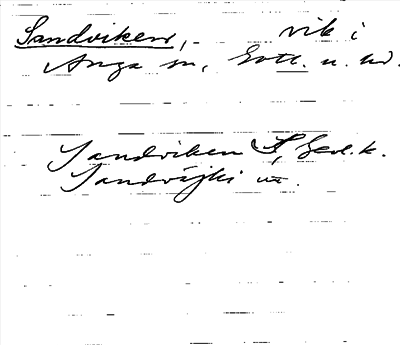 Sandviken, - vik i
Anga sn, Gotl. n. hd.
Sandviken S, Ged.k.
Sandvajki